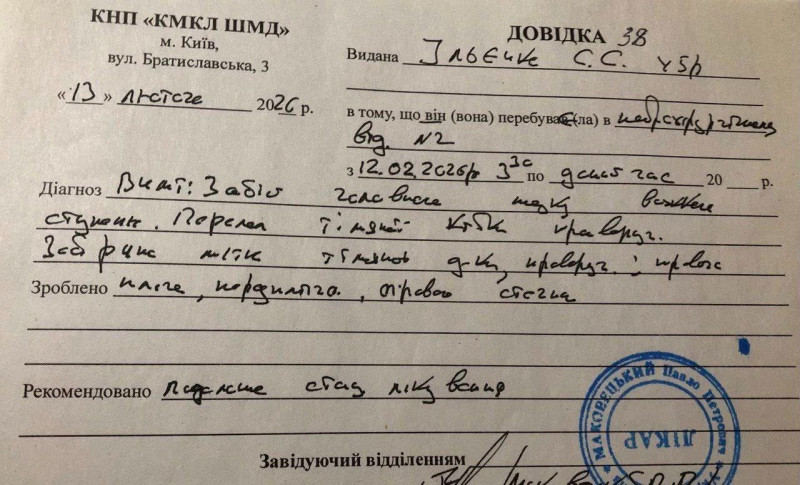 КНП «КМКЛ ШМД»
м. Київ,
вул. Братиславська, 3
«13» лютого 2026 р.
ДОВІДКА 38
Видана С.С. 45р
в тому, що він (вона) перебував(ла) в
від. №2
з 12.02.2026р 3³⁰ по даний час 20 р.
Діагноз Вимт: Забій головного мозку важкого
ступеня. Перелом тім'яної кістки праворуч.
Забійна тім'яної д-ки, праворуч і правого
Зроблено плеча, передпліччя, правого стегна
Рекомендовано подальше стац лікування
Завідуючий відділенням
МАКОВЕЦЬКИЙ Павло Петрович
ЛІКАР